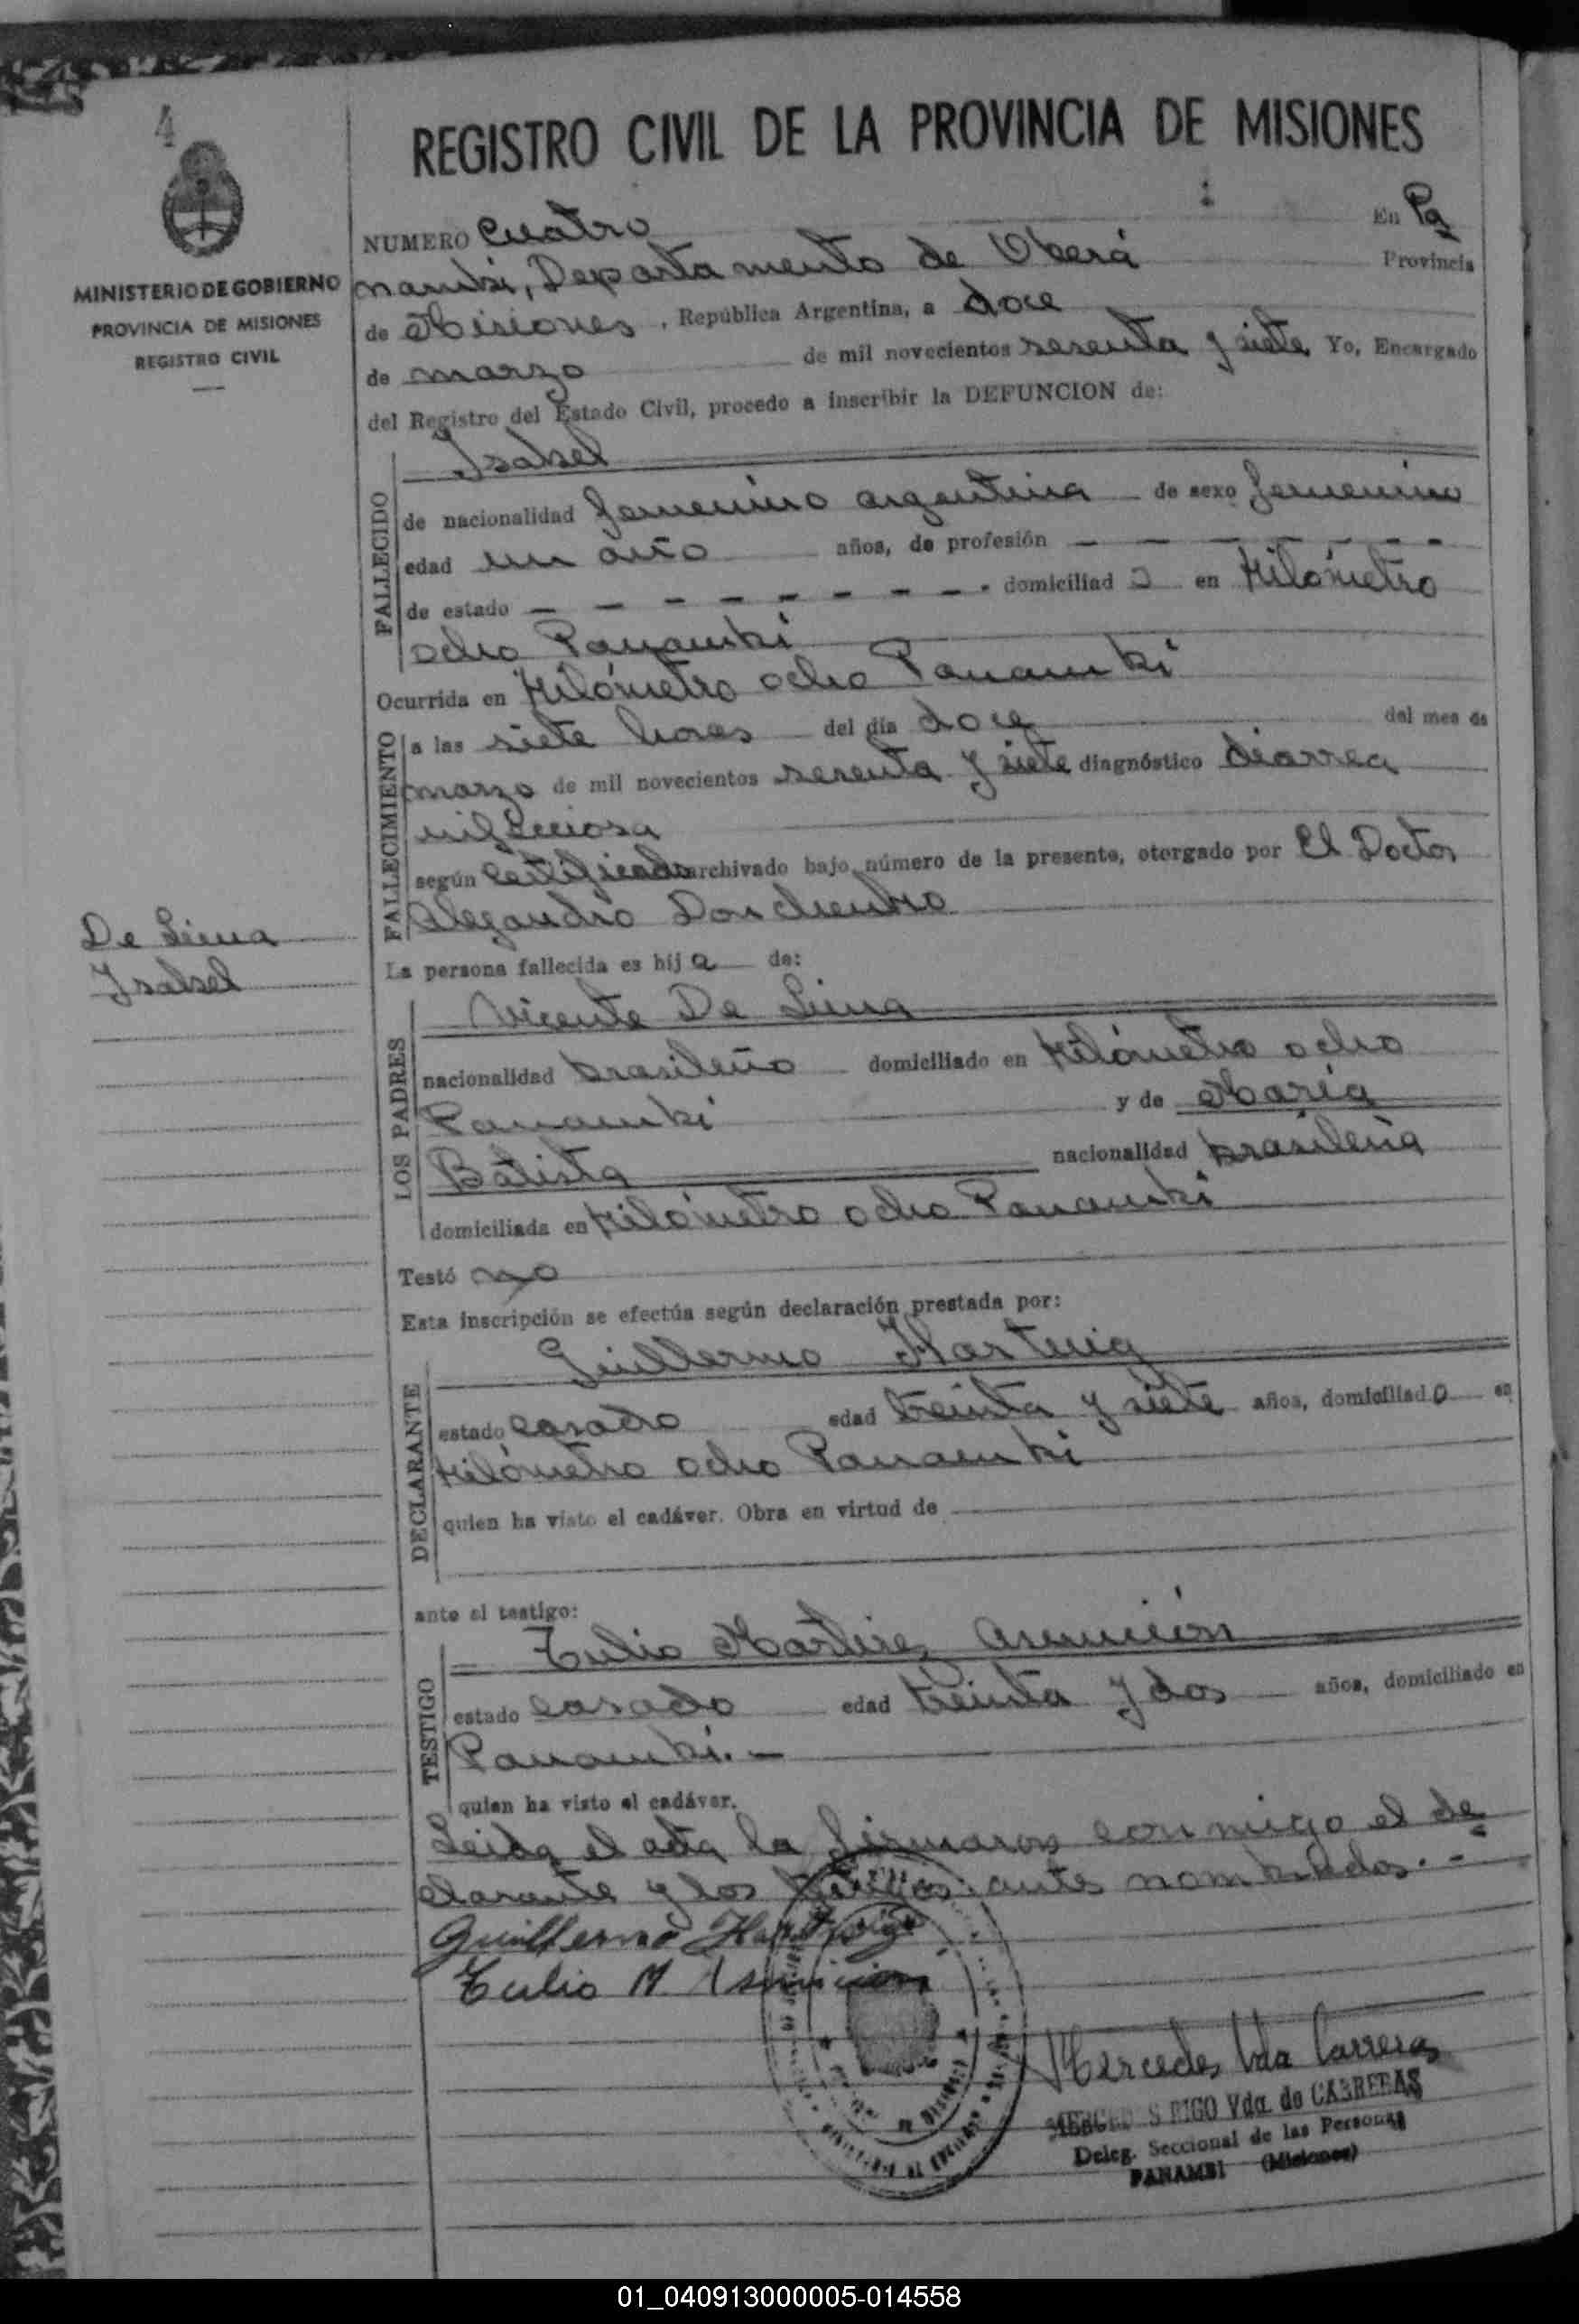 4
MINISTERIO DE GOBIERNO
PROVINCIA DE MISIONES
REGISTRO CIVIL
De Lima
Isabel
REGISTRO CIVIL DE LA PROVINCIA DE MISIONES
NUMERO Cuatro En Pa
nambi, Departamento de Oberá Provincia
de Misiones, República Argentina, a doce
de marzo de mil novecientos sesenta y siete Yo, Encargado
del Registro del Estado Civil, procedo a inscribir la DEFUNCION de:
Isabel
FALLECIDO
de nacionalidad femenino argentina de sexo femenino
edad un año años, de profesión - - - - - -
de estado - - - - - - - - - domiciliad a en Kilómetro
ocho Panambi
Ocurrida en Kilómetro ocho Panambi
FALLECIMIENTO
a las siete horas del día doce del mes de
marzo de mil novecientos sesenta y siete diagnóstico diarrea
infecciosa
según certificado archivado bajo número de la presente, otorgado por El Doctor
Alejandro
La persona fallecida es hij a de:
LOS PADRES
Vicente De Lima
nacionalidad brasileño domiciliado en Kilómetro ocho
Panambi y de María
Batista nacionalidad brasileña
domiciliada en Kilómetro ocho Panambi
Testó no
Esta inscripción se efectúa según declaración prestada por:
DECLARANTE
Guillermo Hartwig
estado casado edad treinta y siete años, domiciliad o en
Kilómetro ocho Panambi
quien ha visto el cadáver. Obra en virtud de
ante el testigo:
TESTIGO
Tulio Martires Asunción
estado casado edad treinta y dos años, domiciliado en
Panambi.-
quien ha visto el cadáver.
Leida el acta la firmaron conmigo el de
clarante y los testigos antes nombrados.-
Guillermo Hartwig
Tulio M. Asunción
Mercedes Vda Carreras
MERCEDES RIGO Vda. de CABRERAS
Deleg. Seccional de las Personas
PANAMBI (Misiones)
01_040913000005-014558